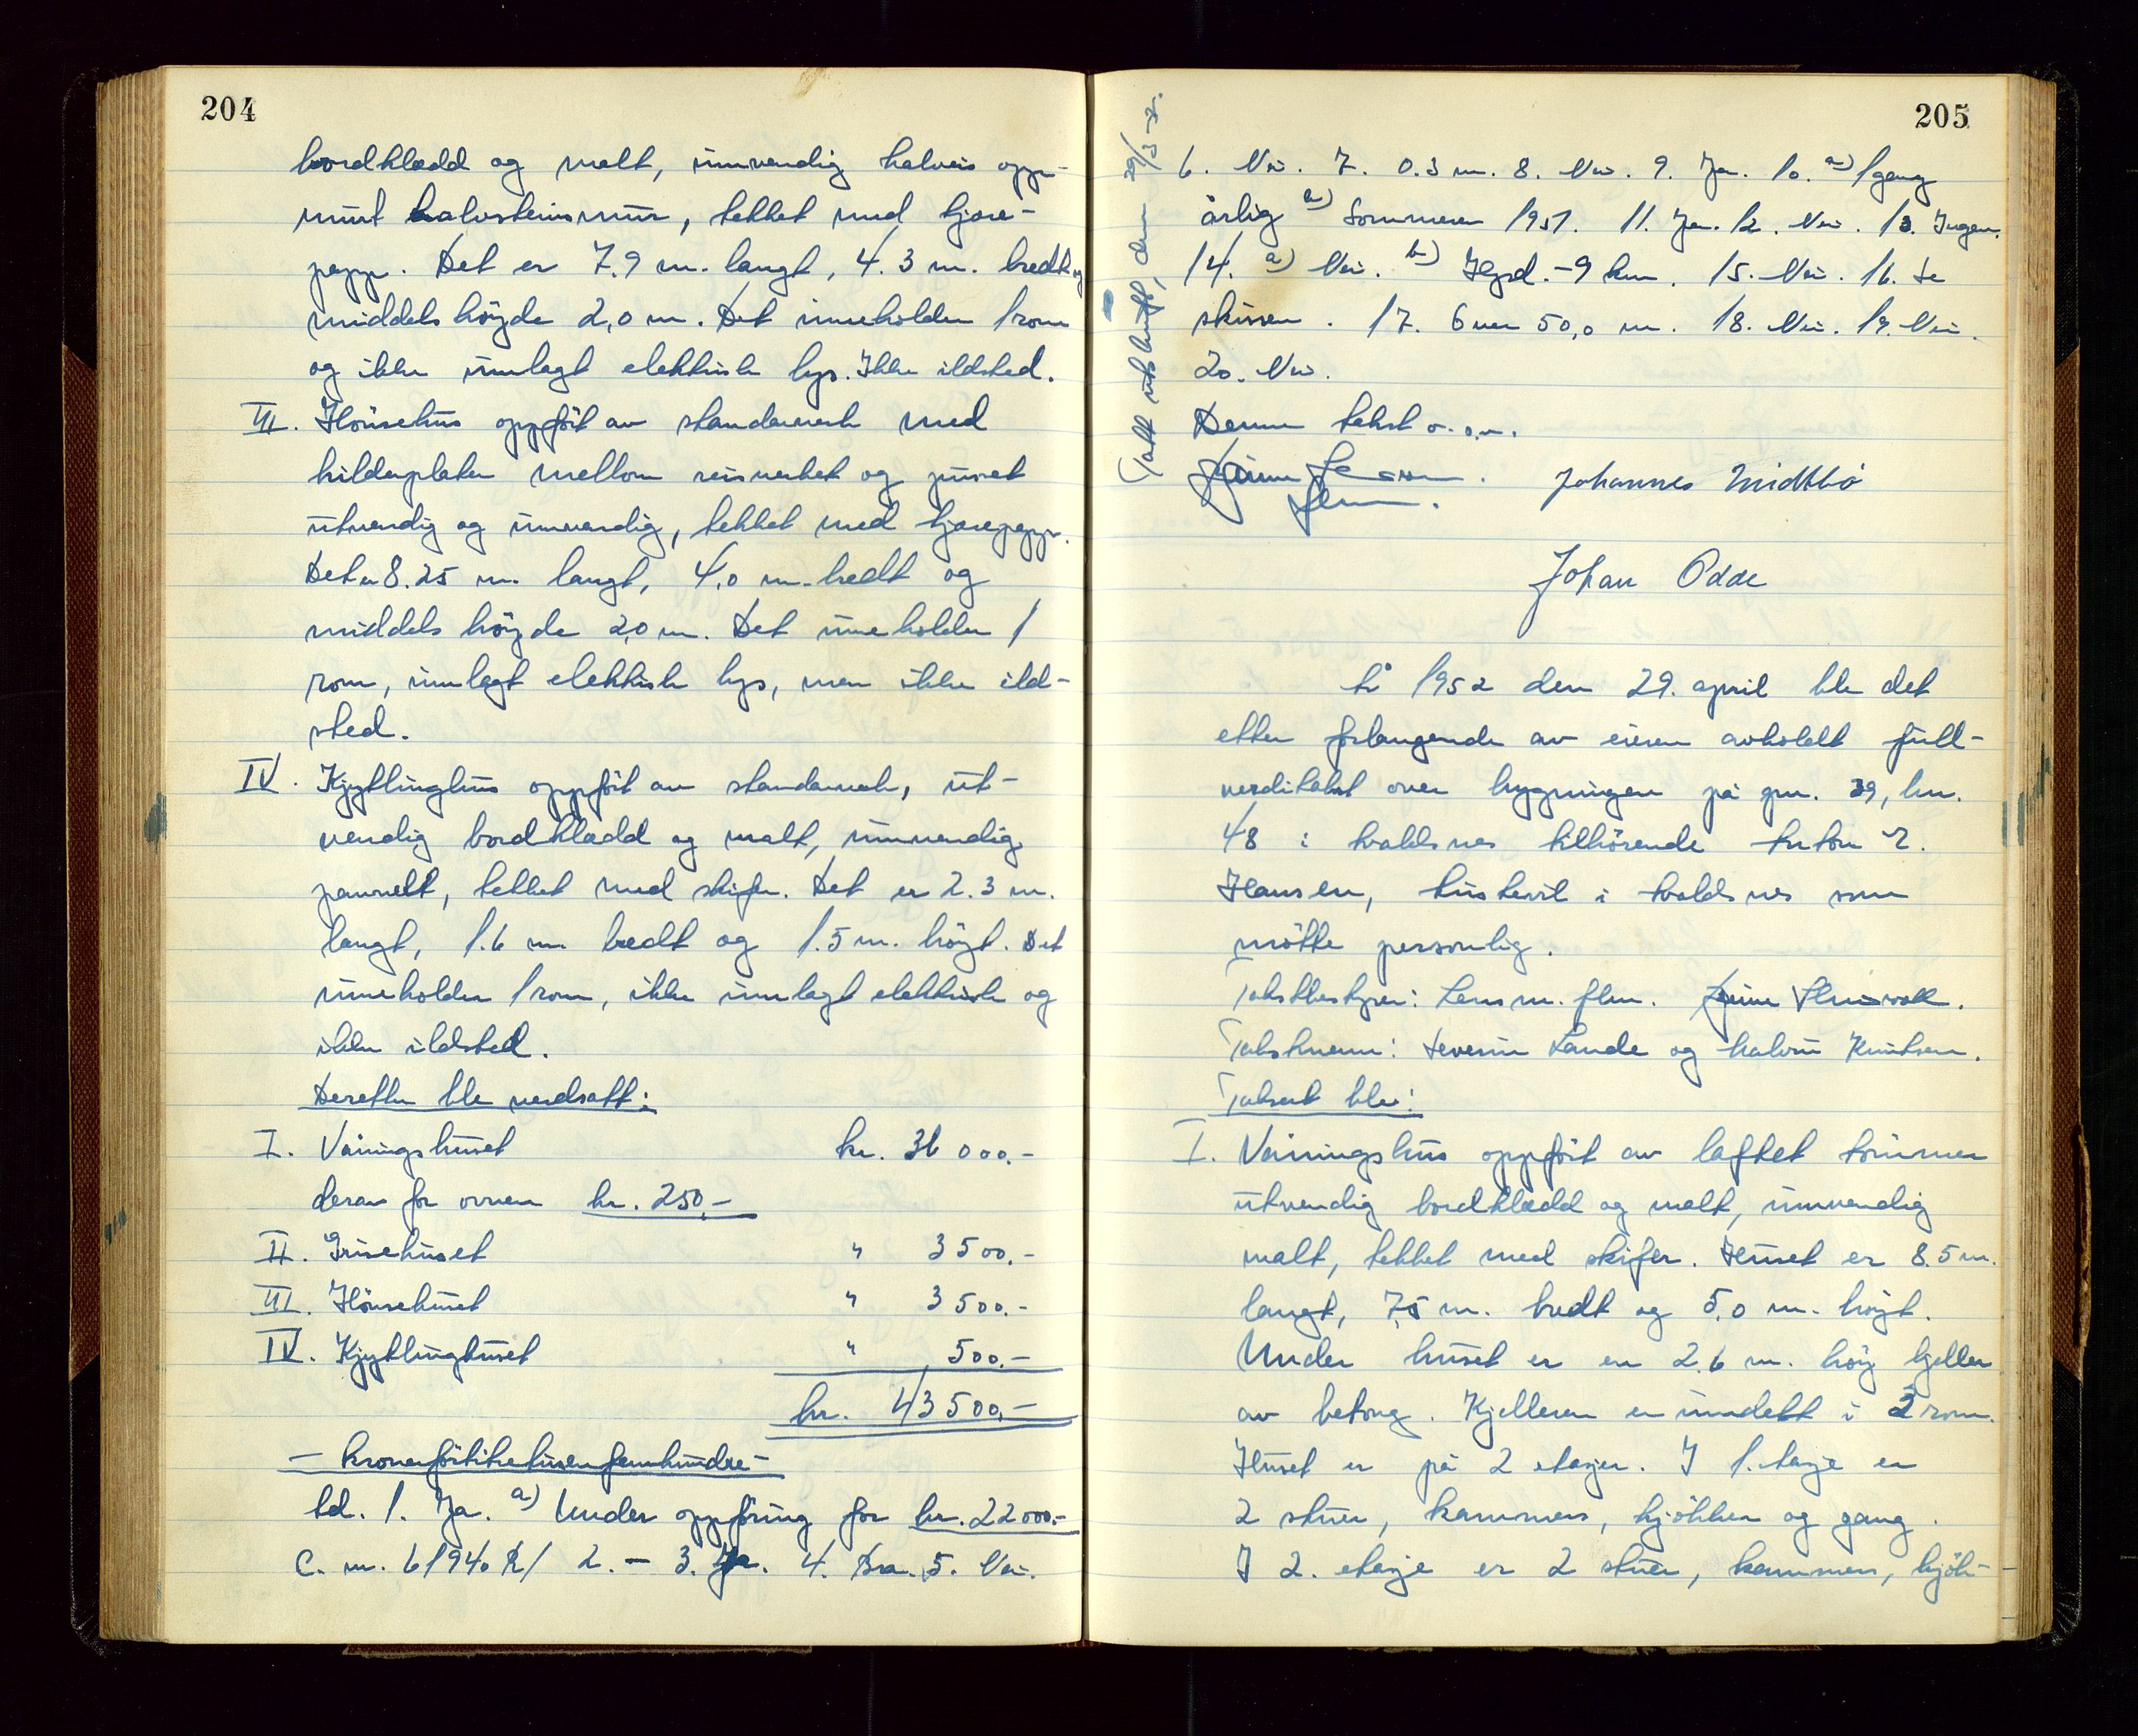 204
bordkledd og malt, innvendig halveis opp-
murt halvsteinsmur, tekket med tjære-
papp. Det er 7.9 m. langt, 4.3 m. bredt og
middels høyde 2,0 m. Det inneholder 1 rom
og ikke innlagt elektrisk lys. Ikke ildsted.
III. Hönsehus oppfört av standarverk med
kilderplater mellom reisverket og pusset
utvendig og innvendig, tekket med tjærepapp.
Det er 8.25 m. langt, 4,0 m. bredt og
middels höyde 2,0 m. Det inneholder 1
rom, innlagt elektrisk lys, men ikke ild-
sted.
IV. Kjyllinghus oppfört av standarverk, ut-
vendig bordkledd og malt, innvendig
pannelt, tekket med skifer. Det er 2.3 m.
langt, 1.6 m bredt og 1.5 m. höyt. Det
inneholder 1 rom, ikke innlagt elektrisk og
ikke ildsted.
Deretter ble verdsatt:
I. Våningshuset kr. 36 000.-
derav for ovnen kr. 250,-
II. Grisehuset " 3500.-
III. Hönsehuset " 3500.-
IV. Kjyllinghuset " 500.-
kr. 43500,-
- kronerförtitretusenfemhundre -
Ad. 1. Ja. a) Under oppföring for kr. 22000.-
C. m. 61940 R/ 2. - 3. Ja. 4. Bra. 5. Nei.
205
Tatt utskrift, den 29/5-52.
6. Nei. 7. 0.3 m. 8. Nei. 9. Ja. 10. a) 1 gang
årlig b) Sommeren 1951. 11. Ja. 12. Nei. 13. Ingen.
14. a) Nei. b) Hgsd. - 9 km. 15. Nei. 16. Se
skissen. 17. Over 50,0 m. 18. Nei. 19. Nei.
20. Nei.
Denne takst o.s.v.
Johannes Midtbö
Johan Odde
År 1952 den 29. april ble det
etter forlangende av eieren avholdt full-
verditakst over bygningen på gnr. 39, bnr.
48 i Avaldsnes tilhörende Anton R.
Hansen, Austevik i Avaldsnes som
mötte personlig.
Takstbestyrer: Lensm. flm.
Takstmenn: Severin Lande og Halvor Knutsen.
Taksert ble:
I. Våningshus oppfört av laftet tömmer
utvendig bordkledd og malt, innvendig
malt, tekket med skifer. Huset er 8.5 m.
langt, 7,5 m. bredt og 5,0 m. höyt.
Under huset er en 2.6 m. höy kjeller
av betong. Kjelleren er inndelt i 2 rom.
Huset er på 2 etasjer. I 1. etasje er
2 stuer, kammers, kjökken og gang.
I 2. etasje er 2 stuer, kammers, kjök-